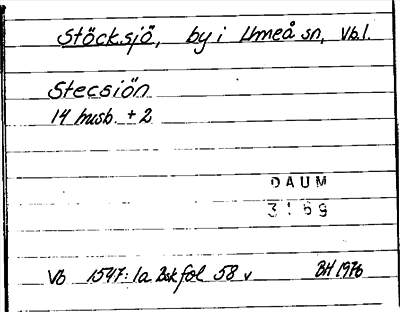 Stöcksjö, by i Umeå sn, Vb.l.
Stecsiön
14 husb. + 2
DAUM
3169
Vb 1547: 1a Bsk fol 58 v BH 1976